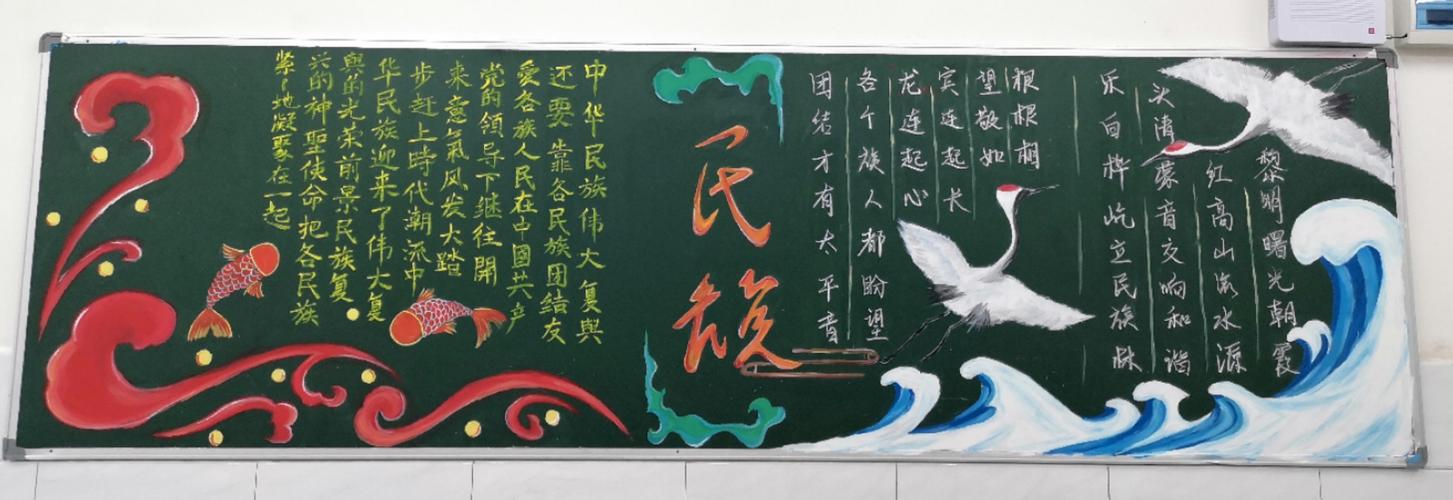 黎明曙光朝霞
红高山流水源
头清蒙音交响和谐
乐白桦屹立民族林
根根相
望敬如
宾连起长
龙连起心
各个族人都盼望
团结才有太平音
民族
中华民族伟大复興
还要靠各民族团结友
爱各族人民在中國共产
党的領导下继往開
来意氣风发大踏
步赶上時代潮流中
华民族迎来了伟大复
興的光荣前景民族复
兴的神聖使命把各民族
紧々地凝聚在一起